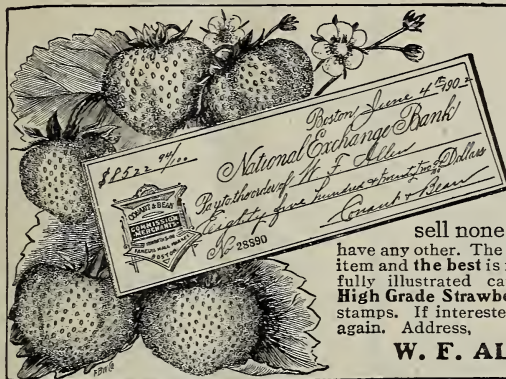 Boston June 4th 1902
$8522 94/100
National Exchange Bank
Pay to the order of W. F. Allen
Eighty five hundred & twenty two 94/100 Dollars
Conant & Bean
No 28590
CONANT & BEAN
COMMISSION
MERCHANTS
FANEUIL HALL MARKET
BOSTON
sell none
have any other. The
item and the best is
fully illustrated ca
High Grade Strawbe
stamps. If intereste
again. Address,
W. F. AL